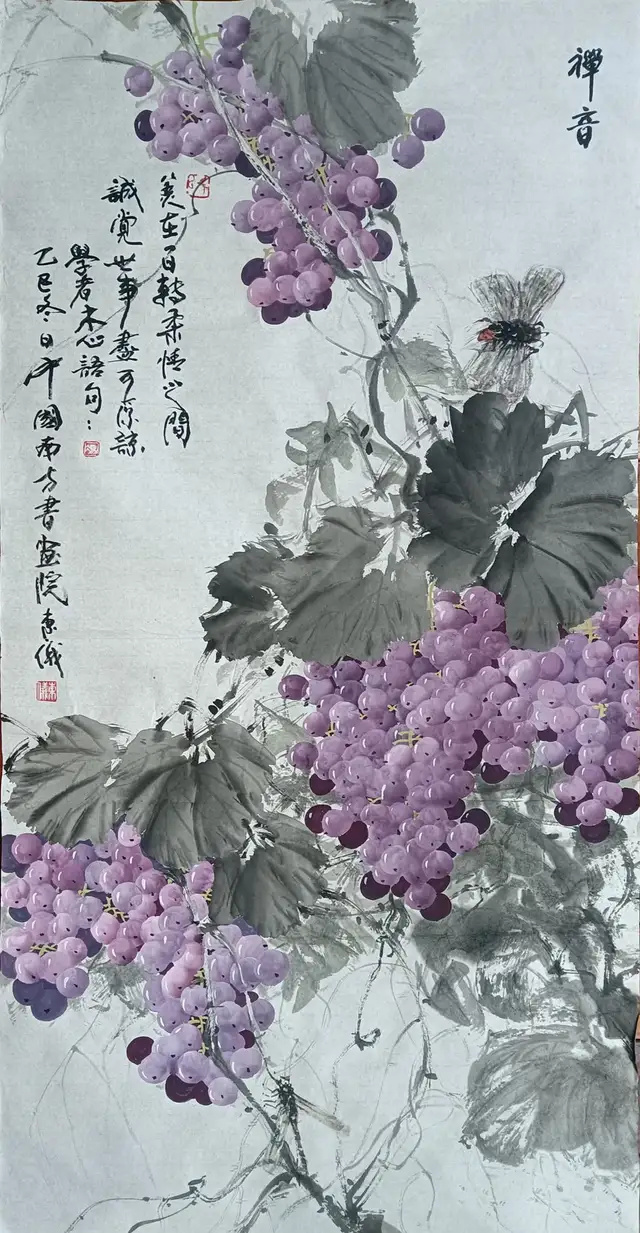 禪音
在百轉柔情之間
誠覺世事盡可原諒
學者木心語句：
乙巳冬日中國南方書畫院東儀